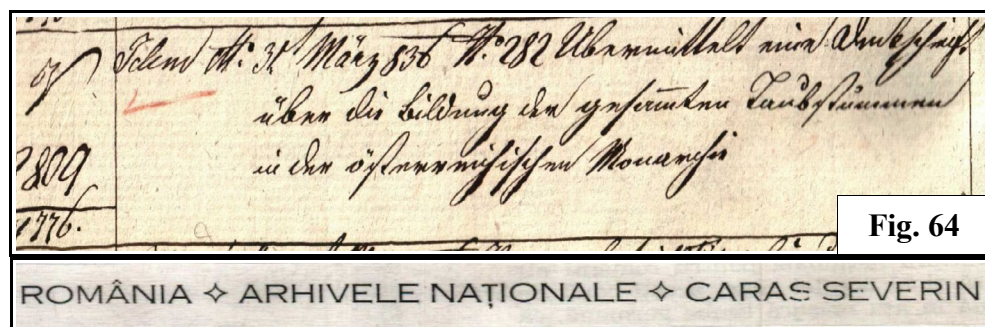 Idem tto. 31t März 836 No. 282 Übermittelt eine Denkschrift
über die Bildung der gesammten Taubstummen
2809 in der österreichischen Monarchie
1776.
Fig. 64
ROMÂNIA ✧ ARHIVELE NAȚIONALE ✧ CARAS SEVERIN